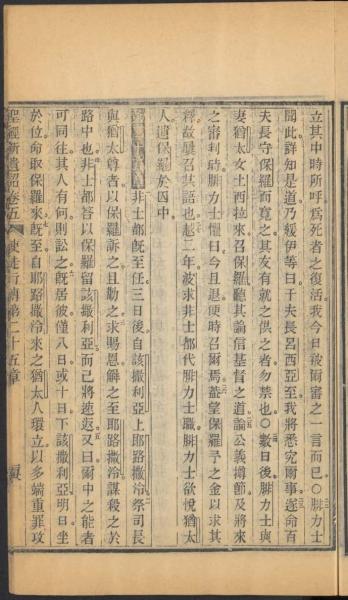 立其中時所呼爲死者之復活我今日被爾審之一言而已○腓力士
聞此詳知是道乃緩伊等曰千夫長呂西亞至我將悉究爾事遂命百
夫長守保羅而寬之其友有就之供之者勿禁也○數日後腓力士與
妻猶太女士西拉來召保羅聽其論信基督之道論公義撙節及將來
之審判時腓力士懼曰今且退便時召爾焉蓋望保羅予之金以求其
釋故屢召共語也越二年波求非士都代腓力士職腓力士欲悅猶太
人遺保羅於囚中
非士都旣至任三日後自該撒利亞上耶路撒冷祭司長
與猶太尊者以保羅訴之且勸之求賜恩解之至耶路撒冷謀殺之於
路中也非士都答以保羅留該撒利亞而己將速返又曰爾中之能者
可同往其人有何則訟之旣居彼僅八日或十日下該撒利亞明日坐
於位命取保羅來旣至自耶路撒冷來之猶太人環立以多端重罪攻
聖經新遺詔卷五 二十五章